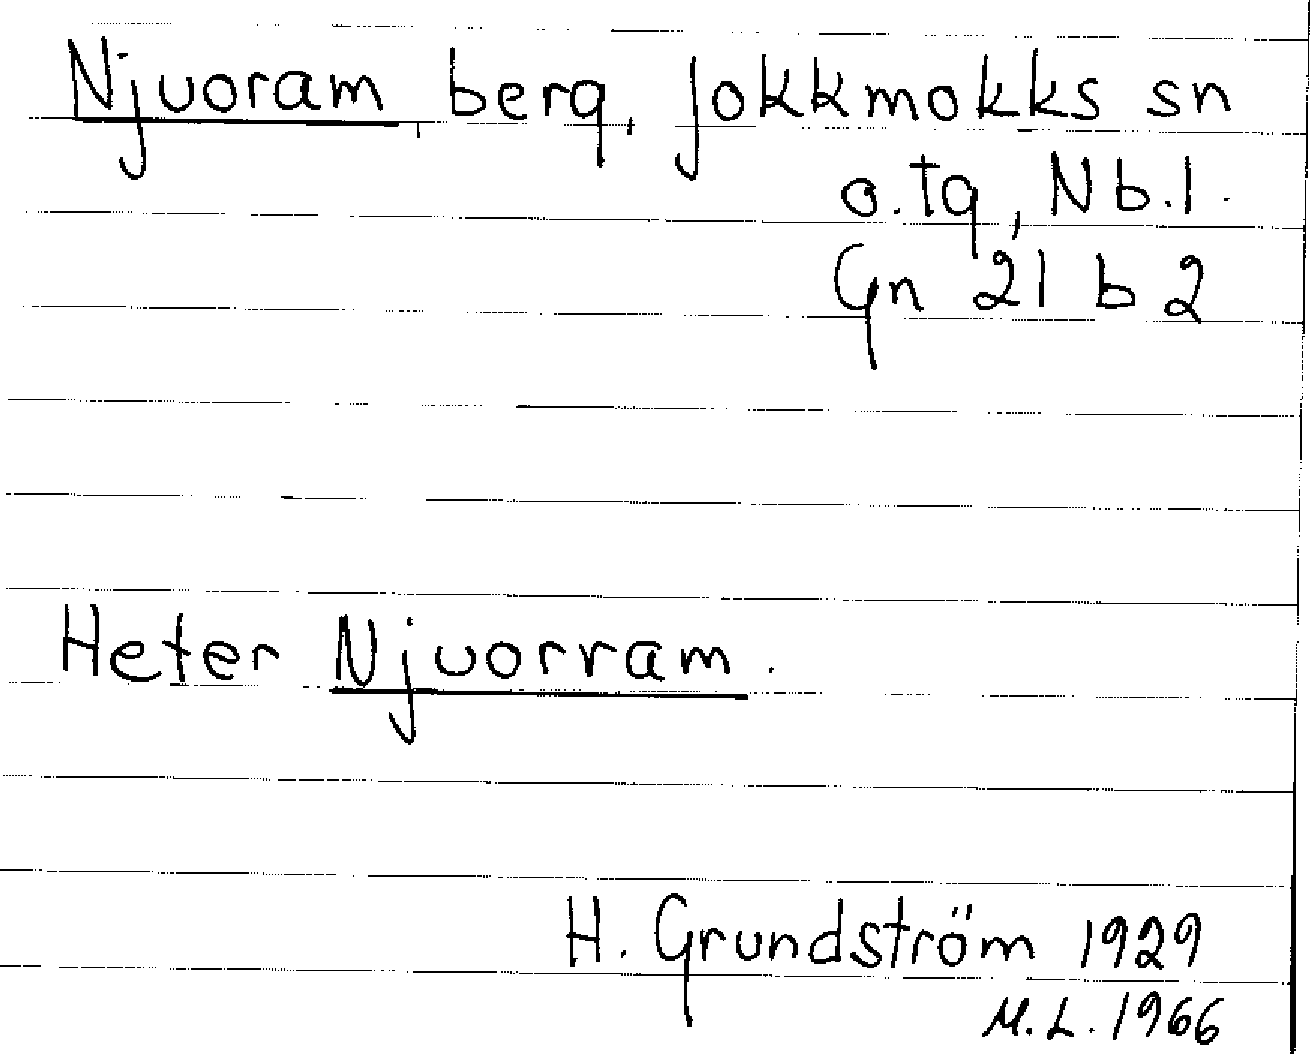 Njuoram, berg, Jokkmokks sn
o. tg, Nb. l.
Gn 21 b 2
Heter Njuorram.
H. Grundström 1929
M. L. 1966